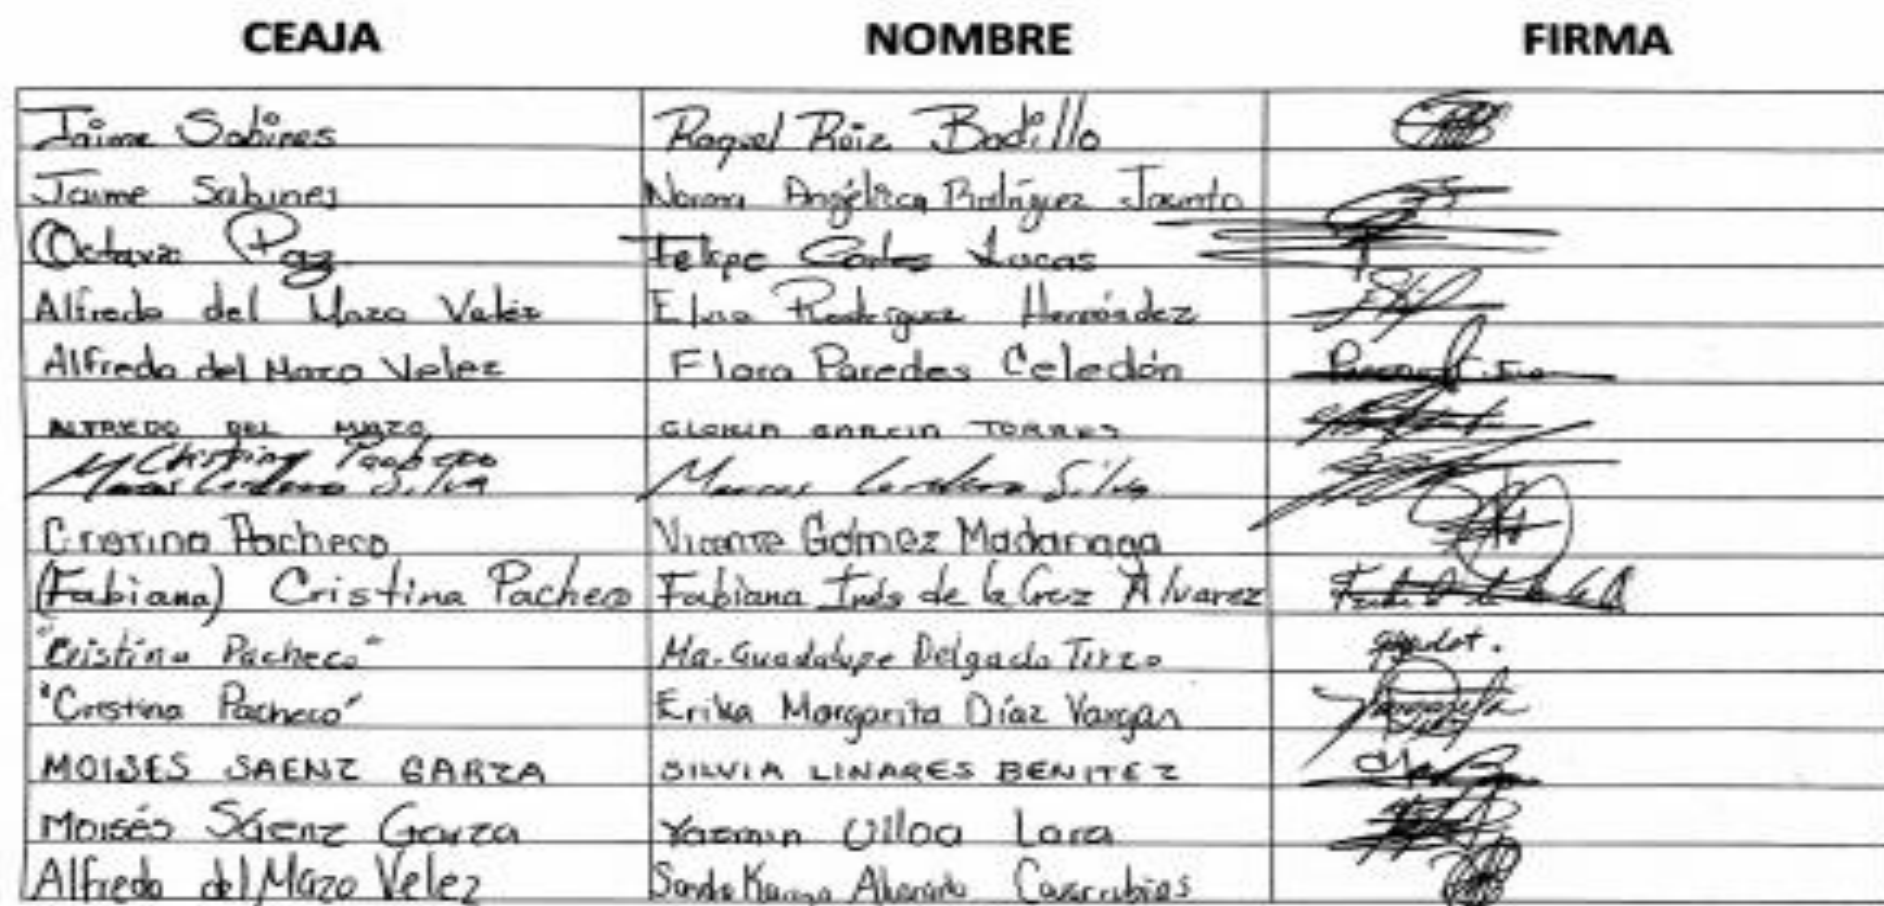 CEAJA NOMBRE FIRMA
Jaime Sabines Raquel Ruiz Badillo
Jaime Sabines Norma Angélica Rodríguez Jacinto
Octavio Paz Felipe Lucas
Alfredo del Mazo Veléz Rodriguez Hernández
Alfredo del Mazo Velez Flora Paredes Celedón
ALFREDO DEL MAZO GLORIA GARCIA TORRES
Cristina Pacheco
Marcos Cordero Silva Marcos Cordero Silva
Cristina Pacheco Vicente Gómez Madariaga
(Fabiana) Cristina Pacheco Fabiana Inés de la Cruz Alvarez
"Cristina Pacheco" Ma. Guadalupe Delgado Tirzo
"Cristina Pacheco" Erika Margarita Díaz Vargas
MOISES SAENZ GARZA SILVIA LINARES BENITEZ
Moisés Sáenz Garza Yazmin Ulloa Lara
Alfredo del Mazo Velez Karina Alvarado Covarrubias